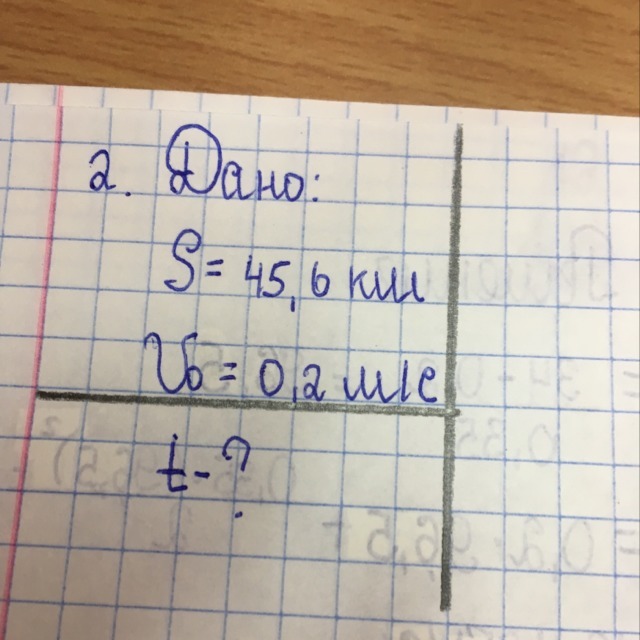 2. Дано:
S = 45,6 км
V0 = 0,2 м/с
t - ?